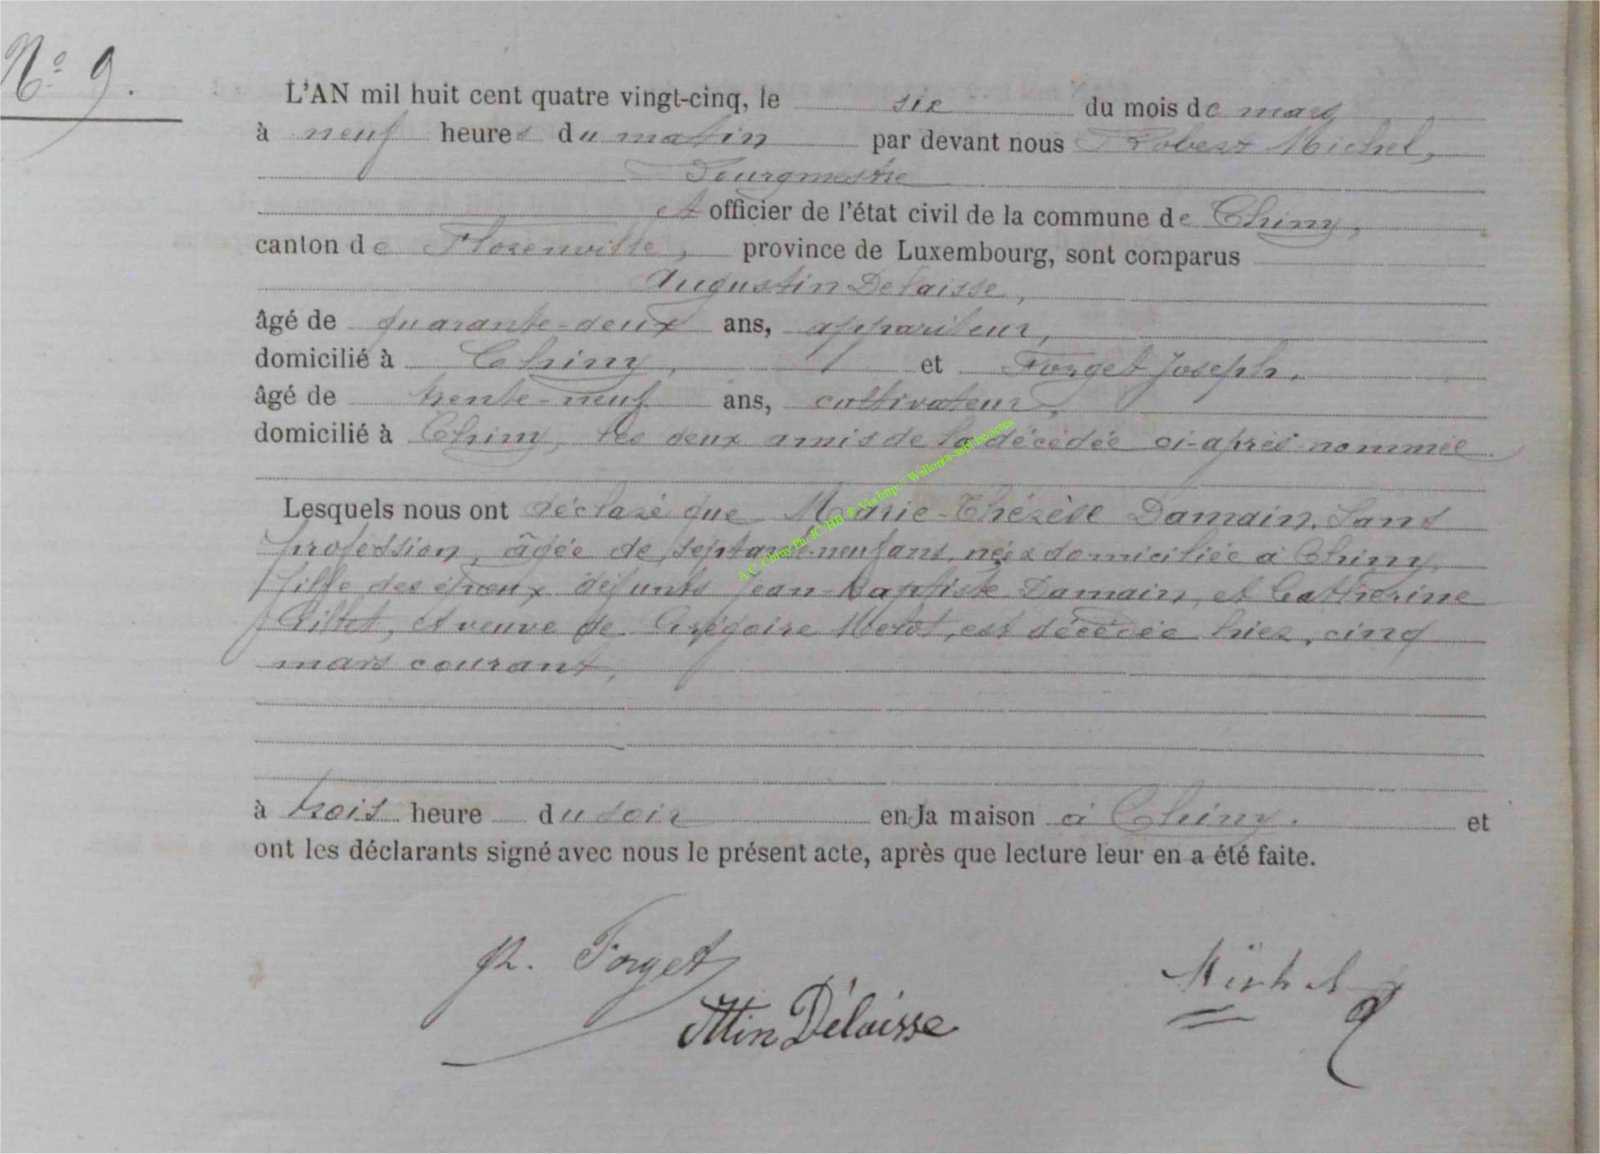 N° 9.
L'AN mil huit cent quatre vingt-cinq, le six du mois de mars
à neuf heures du matin par devant nous Robert Michel,
Bourgmestre
et officier de l'état civil de la commune de Chiny,
canton de Florenville, province de Luxembourg, sont comparus
Augustin Delaisse,
âgé de quarante-deux ans, appariteur,
domicilié à Chiny, et Forget Joseph,
âgé de trente-neuf ans, cultivateur,
domicilié à Chiny, les deux amis de la décédée ci-après nommée
Lesquels nous ont déclaré que Marie-Thérèse Damain, sans
profession, âgée de septante-neuf ans, née & domiciliée à Chiny,
fille des époux défunts Jean-Baptiste Damain, et Catherine
et veuve de Grégoire Melot, est décédée hier, cinq
mars courant,
à trois heure du soir en la maison à Chiny. et
ont les déclarants signé avec nous le présent acte, après que lecture leur en a été faite.
Forget
Attin Délaisse
Michel